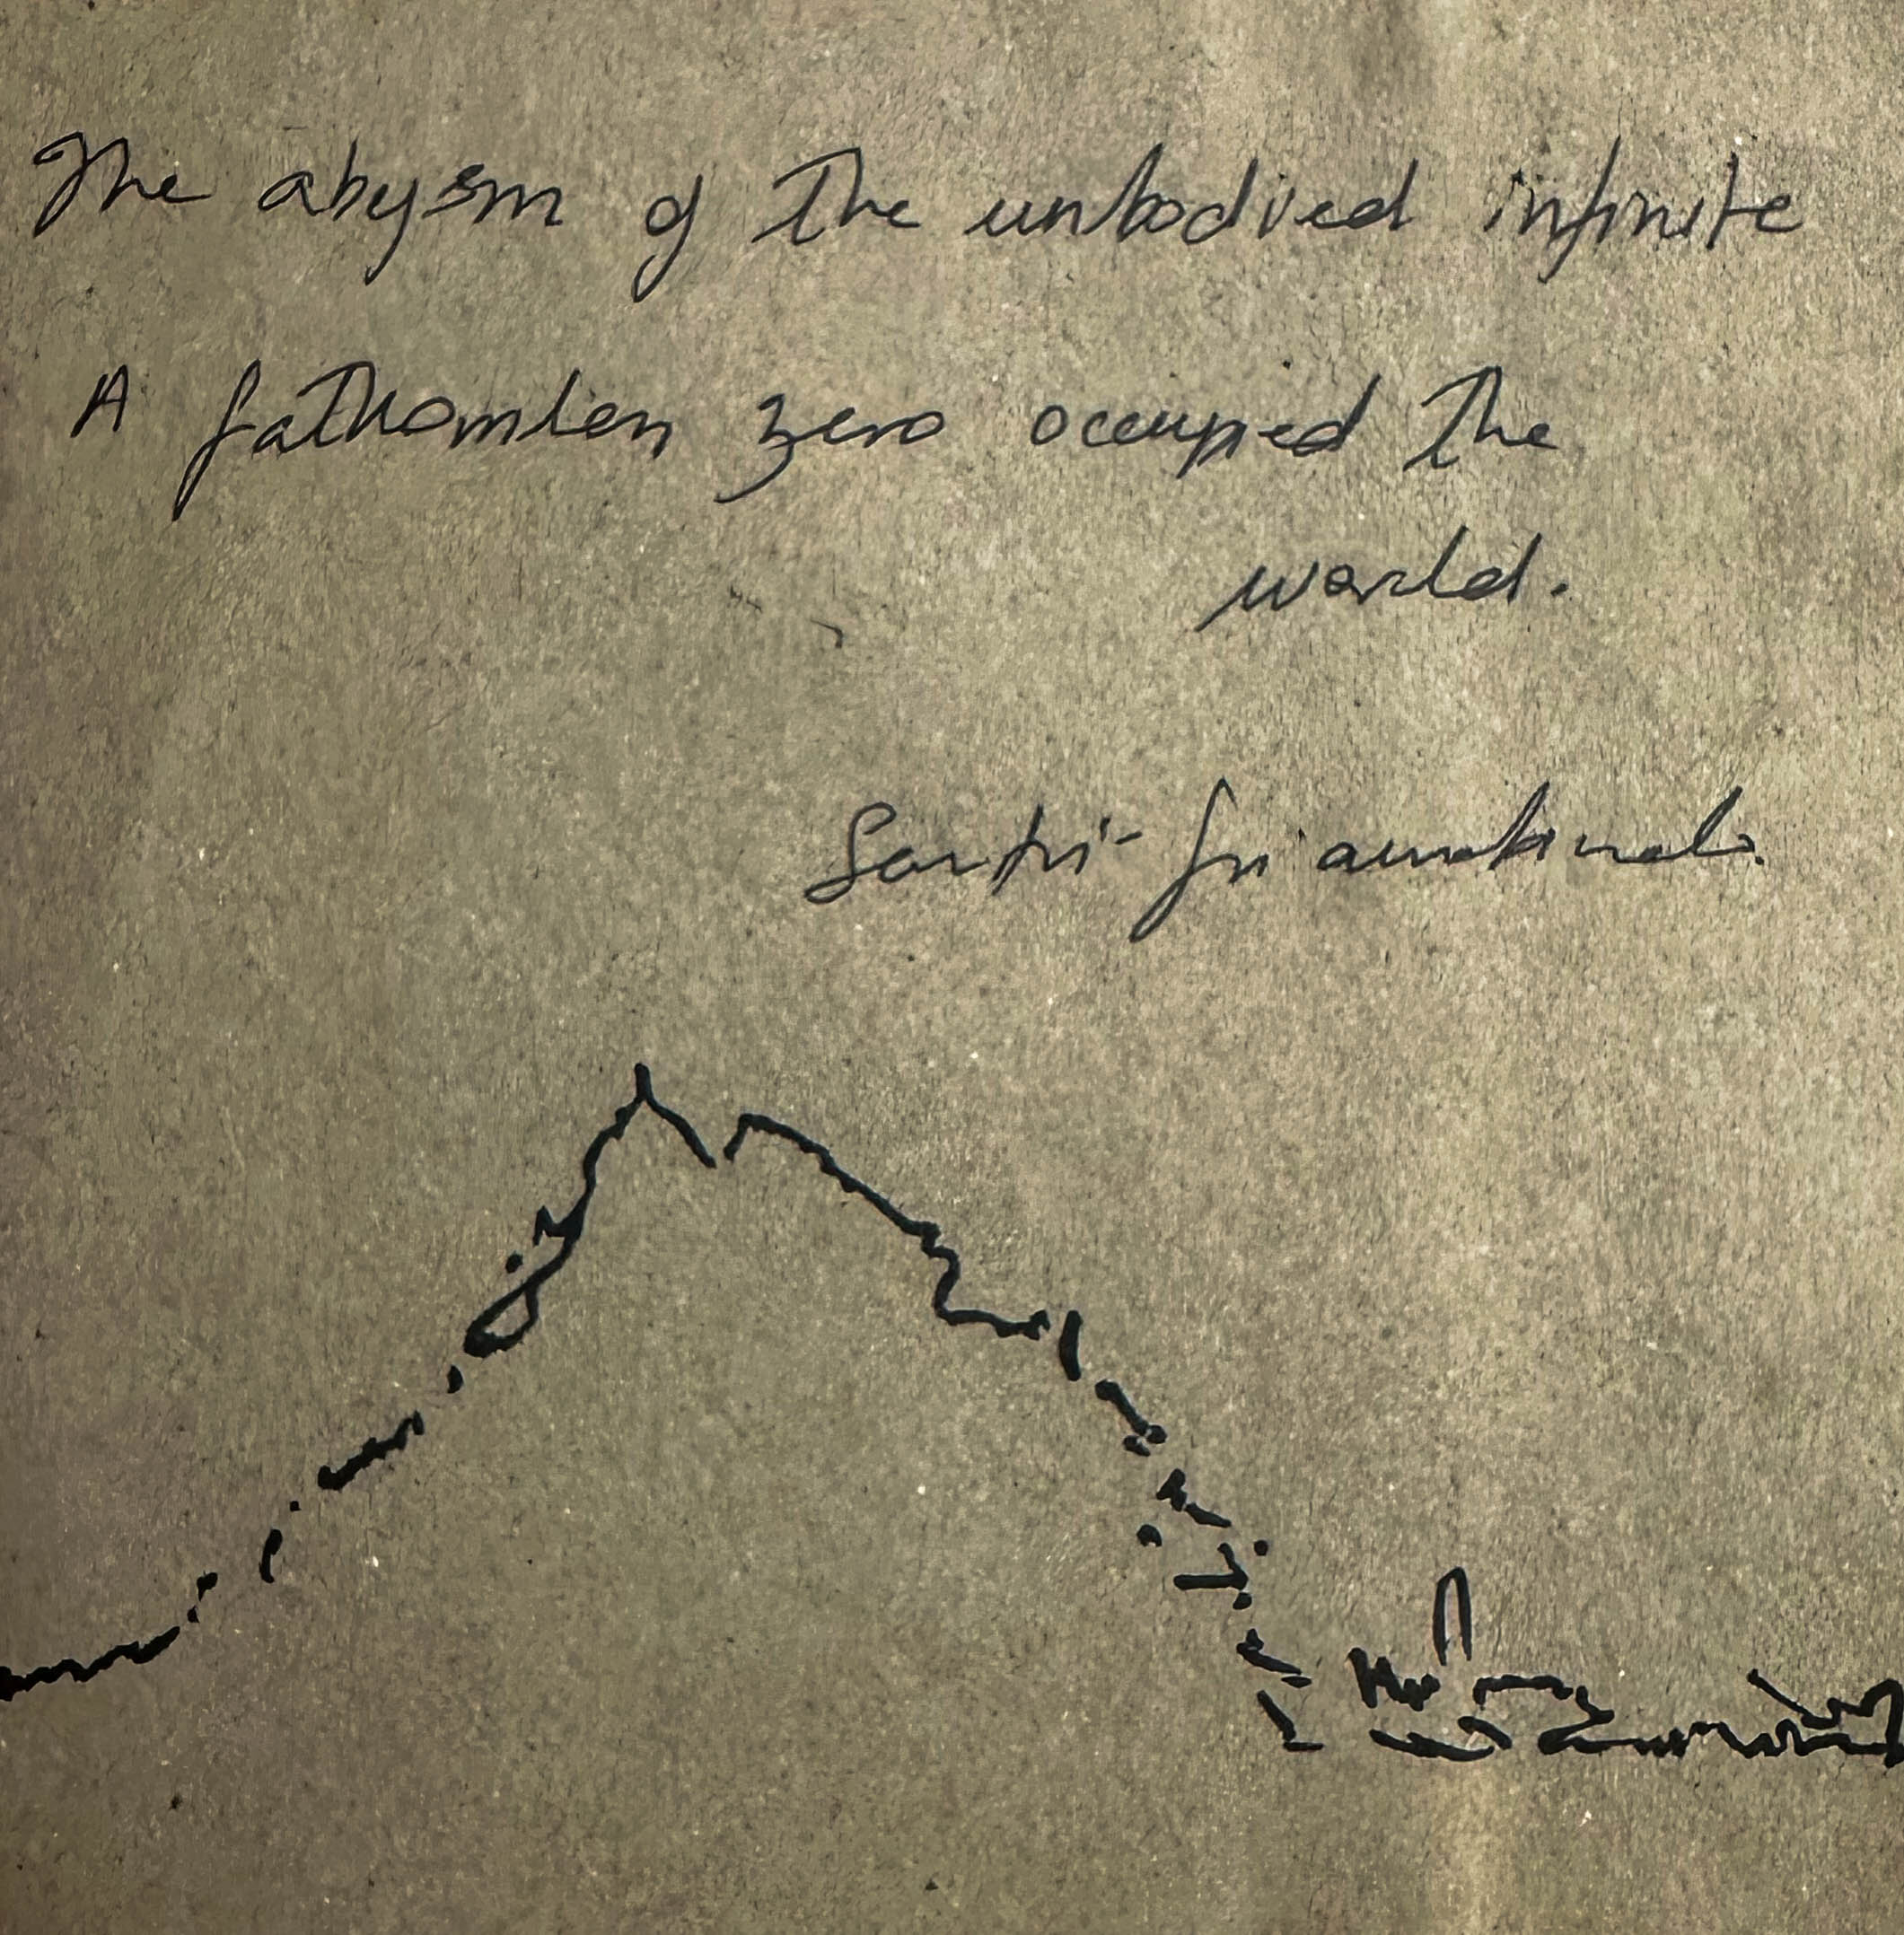 The abysm of the unbodied infinite
A fathomless zero occupied the
world.
Savitri - Sri aurobindo.